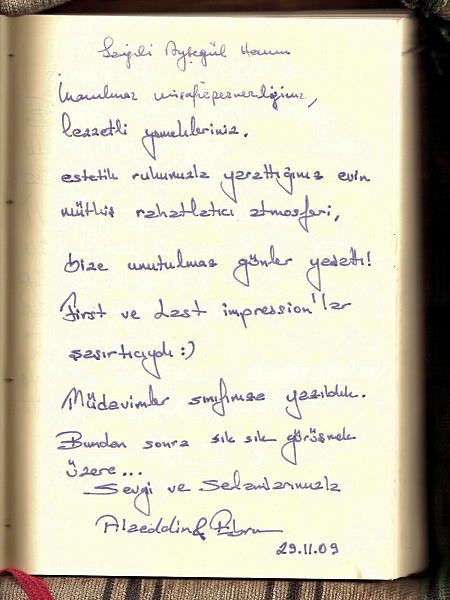 Sevgili Ayşegül Hanım
İnanılmaz misafirperverliğiniz,
lezzetli yemekleriniz,
estetik ruhunuzla yarattığınız evin
müthiş rahatlatıcı atmosferi,
bize unutulmaz günler yaşattı!
First ve Last impression'lar
şaşırtıcıydı :)
Müdavimler sınıfınıza yazıldık.
Bundan sonra sık sık görüşmek
üzere...
Sevgi ve Selamlarımızla
Alaeddin & Ebru
29.11.09